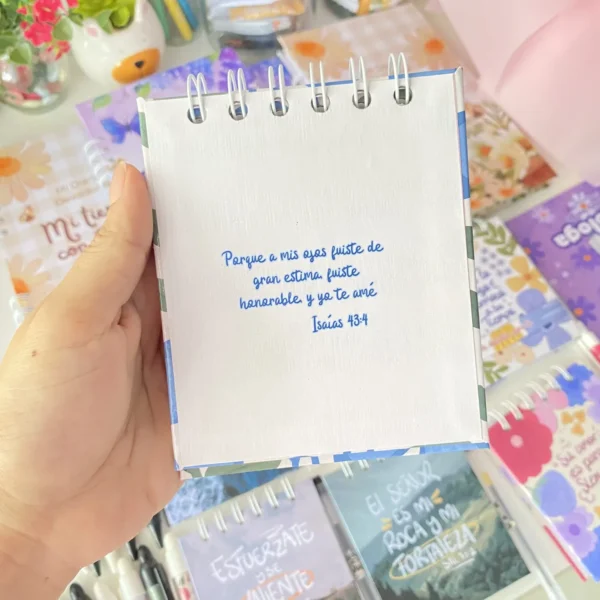 Porque a mis ojos fuiste de
gran estima, fuiste
honorable, y yo te amé
Isaías 43:4
Mi
con
ESFUÉRZATE
y SÉ
VALIENTE
EL SEÑOR
ES MI
ROCA Y MI
FORTALEZA